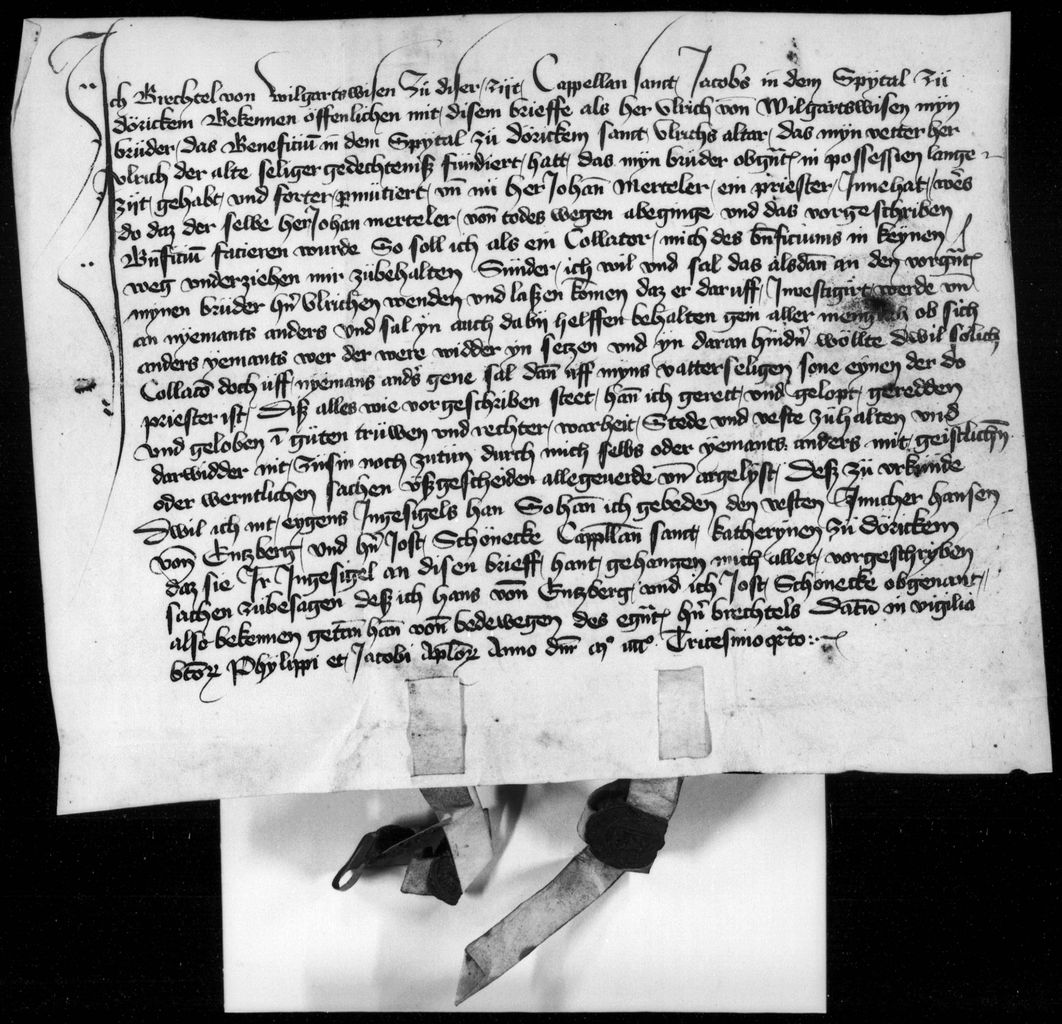 Ich Brechtel von Wilgartswisen Zu diser zijt Cappellan sant Jacobs in dem Spytal zu
dörickem Bekennen offenlichen mit disem brieffe als her Vlrich von Wilgartswisen myn
brüder das Beneficiū in dem Spytal zü dörickem sanct Vlrichs altar das myn vetter her
vlrich der alte seliger gedechtenisz fündiert hatt das myn brüder obgn̄t in possessien lange
zijt gehabt vnd forter ꝑmütiert vn̄ nü her Johan̄ Merteler ein priester Innehat wers
do daz der selbe her Johan merteler von todes wegen abeginge vnd das vorgeschriben
Bn̄ficiū facieren wurde So soll ich als ein Collator mich des bn̄ficiums in keynen
weg vnderziehen mir zübehalten Sünder ich wil vnd sal das alsdan̄ an den vorgn̄t
mynen brüder hn̄ Vlrichen wenden vnd laszen komen daz er daruff Investigirt werde vn̄
an nyemants anders vnd sal yn auch dabij helffen behalten gein aller ob sich
anders yemants wer der were widder yn setzen vnd yn daran hindn̄ wollte dwil solich
Collacō doch uff nyemans and's gene sal dan̄ uff myns vatter seligen sone eynen der do
priester ist Disz alles wie vorgeschriben steet han̄ ich gerett vnd gelopt geredden
vnd geloben ī güten trüwen vnd rechter warheit Stede vnd veste zühalten vnd
darwidder nit zusin noch zutun durch mich selbs oder yemants anders mit geistlichn̄
oder werntlichen sachen vszgescheiden allegeuerde vn̄ argelyst Desz zü vrkünde
dwil ich nit eygens Ingesigels han So han̄ ich gebeden den vesten Juncher hansen
von̄ Entzberg vnd hn̄ Jost Schönecke Cappllan̄ sant katherynen zü dörickem
daz sie Ir Ingesigel an disen brieff hant gehangen mich aller vorgeschryben
sachen zübesagen desz ich hans von̄ Entzberg vnd ich Jost Schönecke obgenant
also bekennen getan̄ han̄ von̄ bedewegen des egn̄t hn̄ brechtels Datū in vigilia
btōꝝ Phylippi et Jacobi Aplōꝝ Anno dn̄i mo iiijc Tricesimo qr̄to